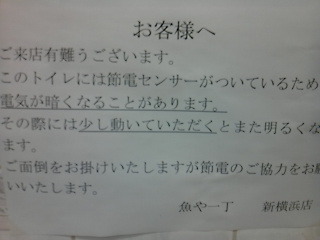 お客様へ
ご来店有難うございます。
このトイレには節電センサーがついているため
電気が暗くなることがあります。
その際には少し動いていただくとまた明るくな
ます。
ご面倒をお掛けいたしますが節電のご協力をお願
いいたします。
魚や一丁 新横浜店